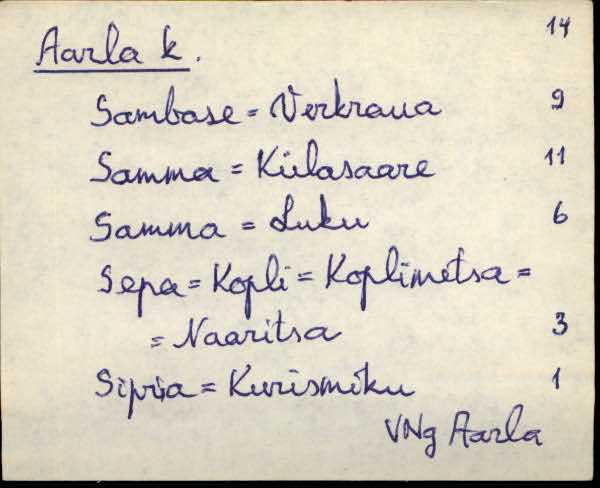 14
Aarla k.
Sambase = Verkraua 9
Samma = Külasaare 11
Samma = Luku 6
Sepa = Kopli = Koplimetsa =
= Naaritsa 3
Sipria = Kurismiku 1
VNg Aarla